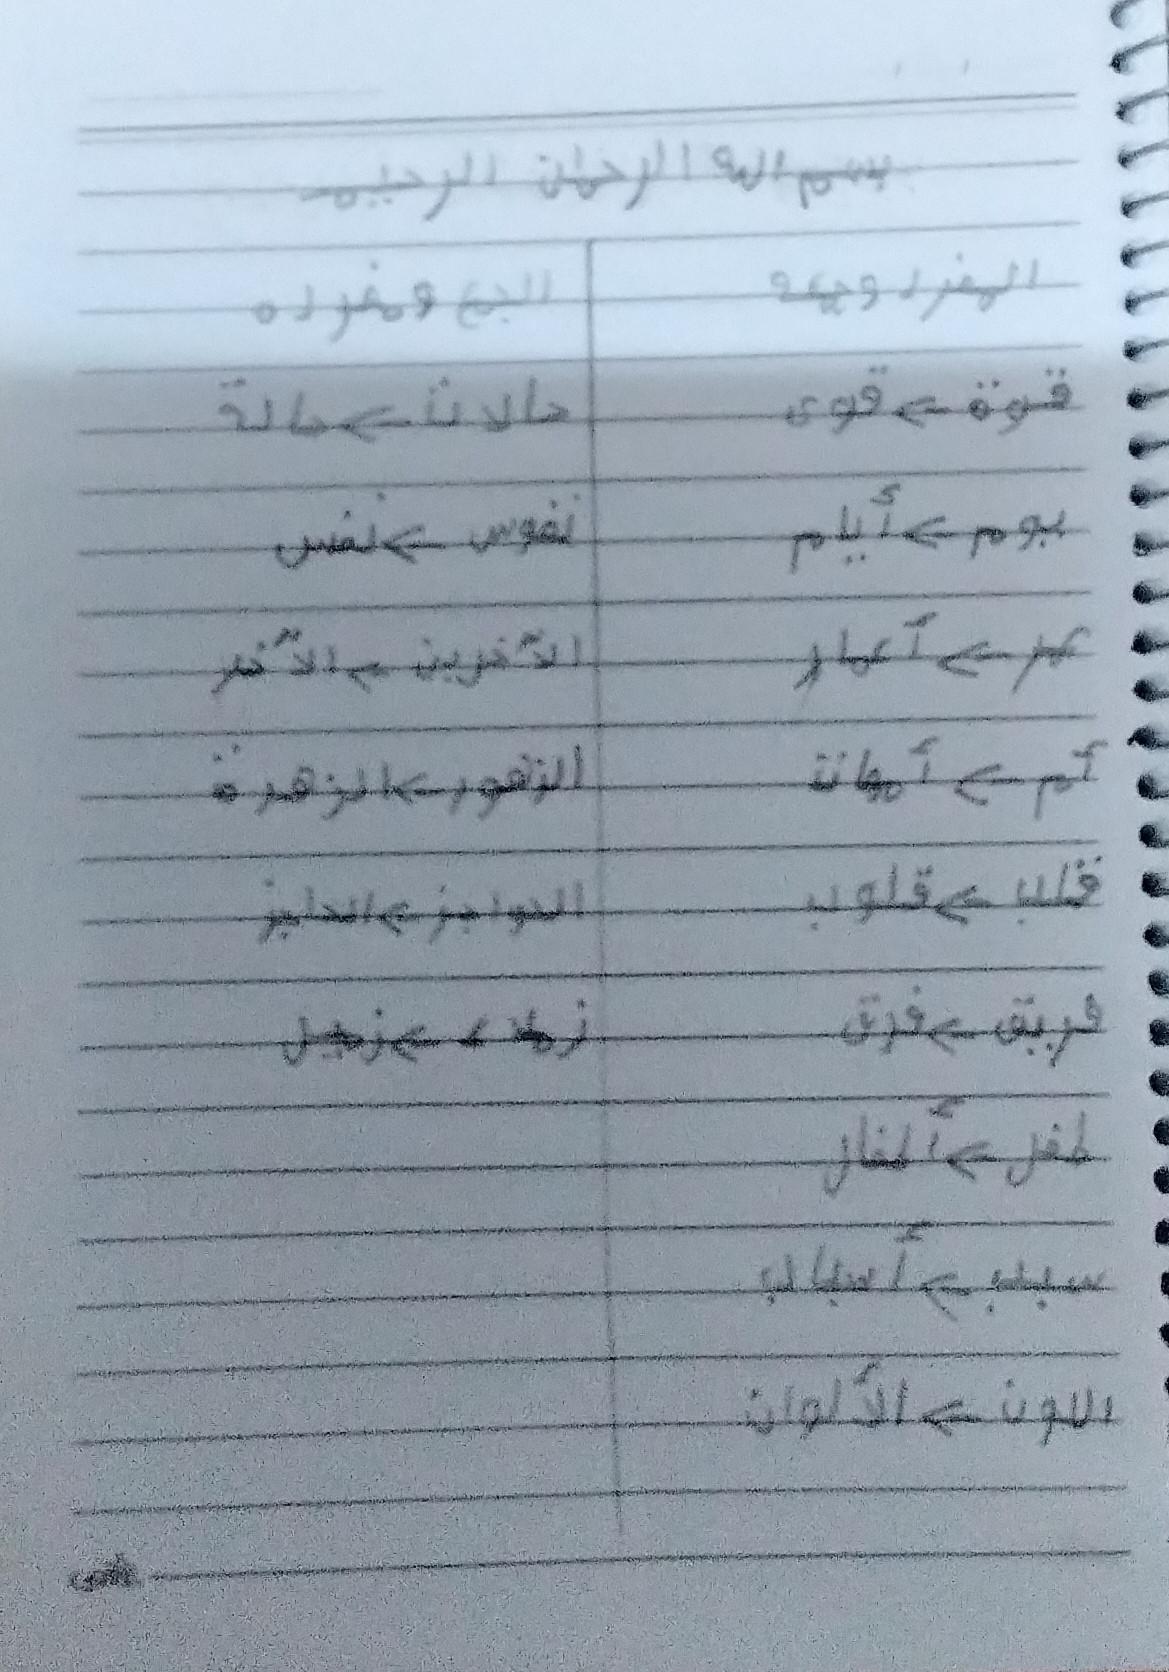 بسم الله الرحمان الرحيم
المفرد وجمعه الجمع ومفرده
قوة ← قوى حالات ← حالة
يوم ← أيام نفوس ← نفس
عمر ← أعمار الآخرين ← الآخر
أم ← أمهات الزهور ← الزهرة
قلب ← قلوب الحواجز ← الحاجز
فريق ← فرق زملاء ← زميل
طفل ← أطفال
سبب ← أسباب
اللون ← الألوان